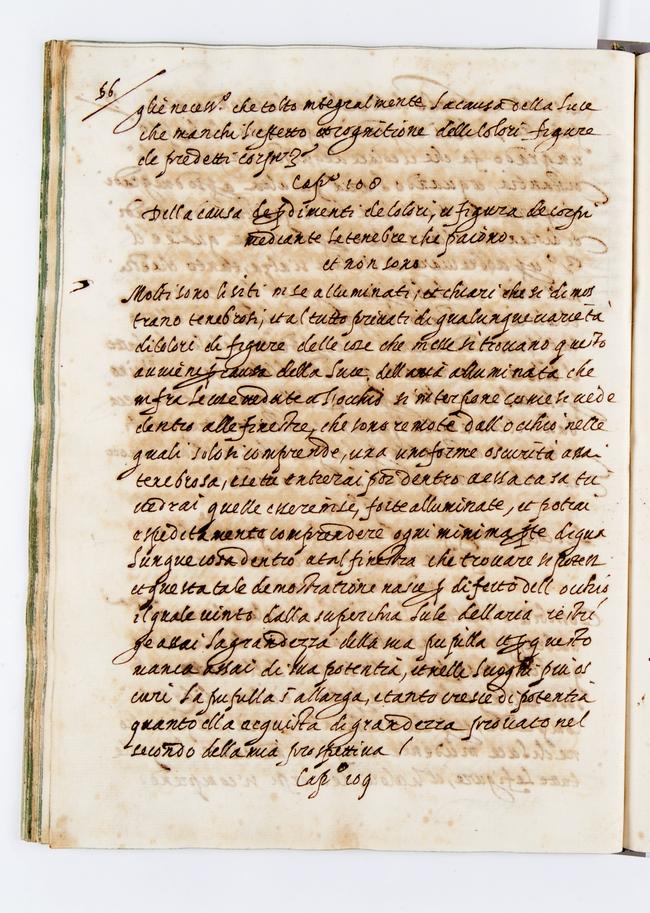 56
gliè necess.º che tolto integralmente la causa della luce
che manchi l'effetto et cognitione delli colori figure
de predetti corpi
Cap.º 108
Della causa de perdimenti de colori, et figura de corpi
mediante le tenebre che paiono
et non sono
Molti sono li siti in se alluminati, et chiari che si dimos
trano tenebrosi, et al tutto privati di qualunque varietà
di colori di figure delle cose che in esse si trovano questo
auuiene p causa della luce dell'aria alluminata che
infra le cose vedute all'occhio si interpone come si vede
dentro alle finestre, che sono remote dall'occhio nelle
quali solo si comprende, una uniforme oscurità assai
tenebrosa, e se tu entrerai poi dentro a essa casa tu
vedrai quelle essere in se, forte alluminate, et potrai
espeditamente comprendere ogni minima pte di qua
lunque cosa dentro a tal finestra che trovare si potessi
et questa tale demostratione nasce p difetto dell occhio
il quale vinto dalla superchia luce dell aria restri
ge assai la grandezza della sua pupilla et p questo
manca assai di sua potentia, et nelli luoghi più os
curi la pupilla s'allarga, et tanto cresce di potentia
quanto ella acquista di grandezza provato nel
secondo della mia prospettiva
Cap.º 109